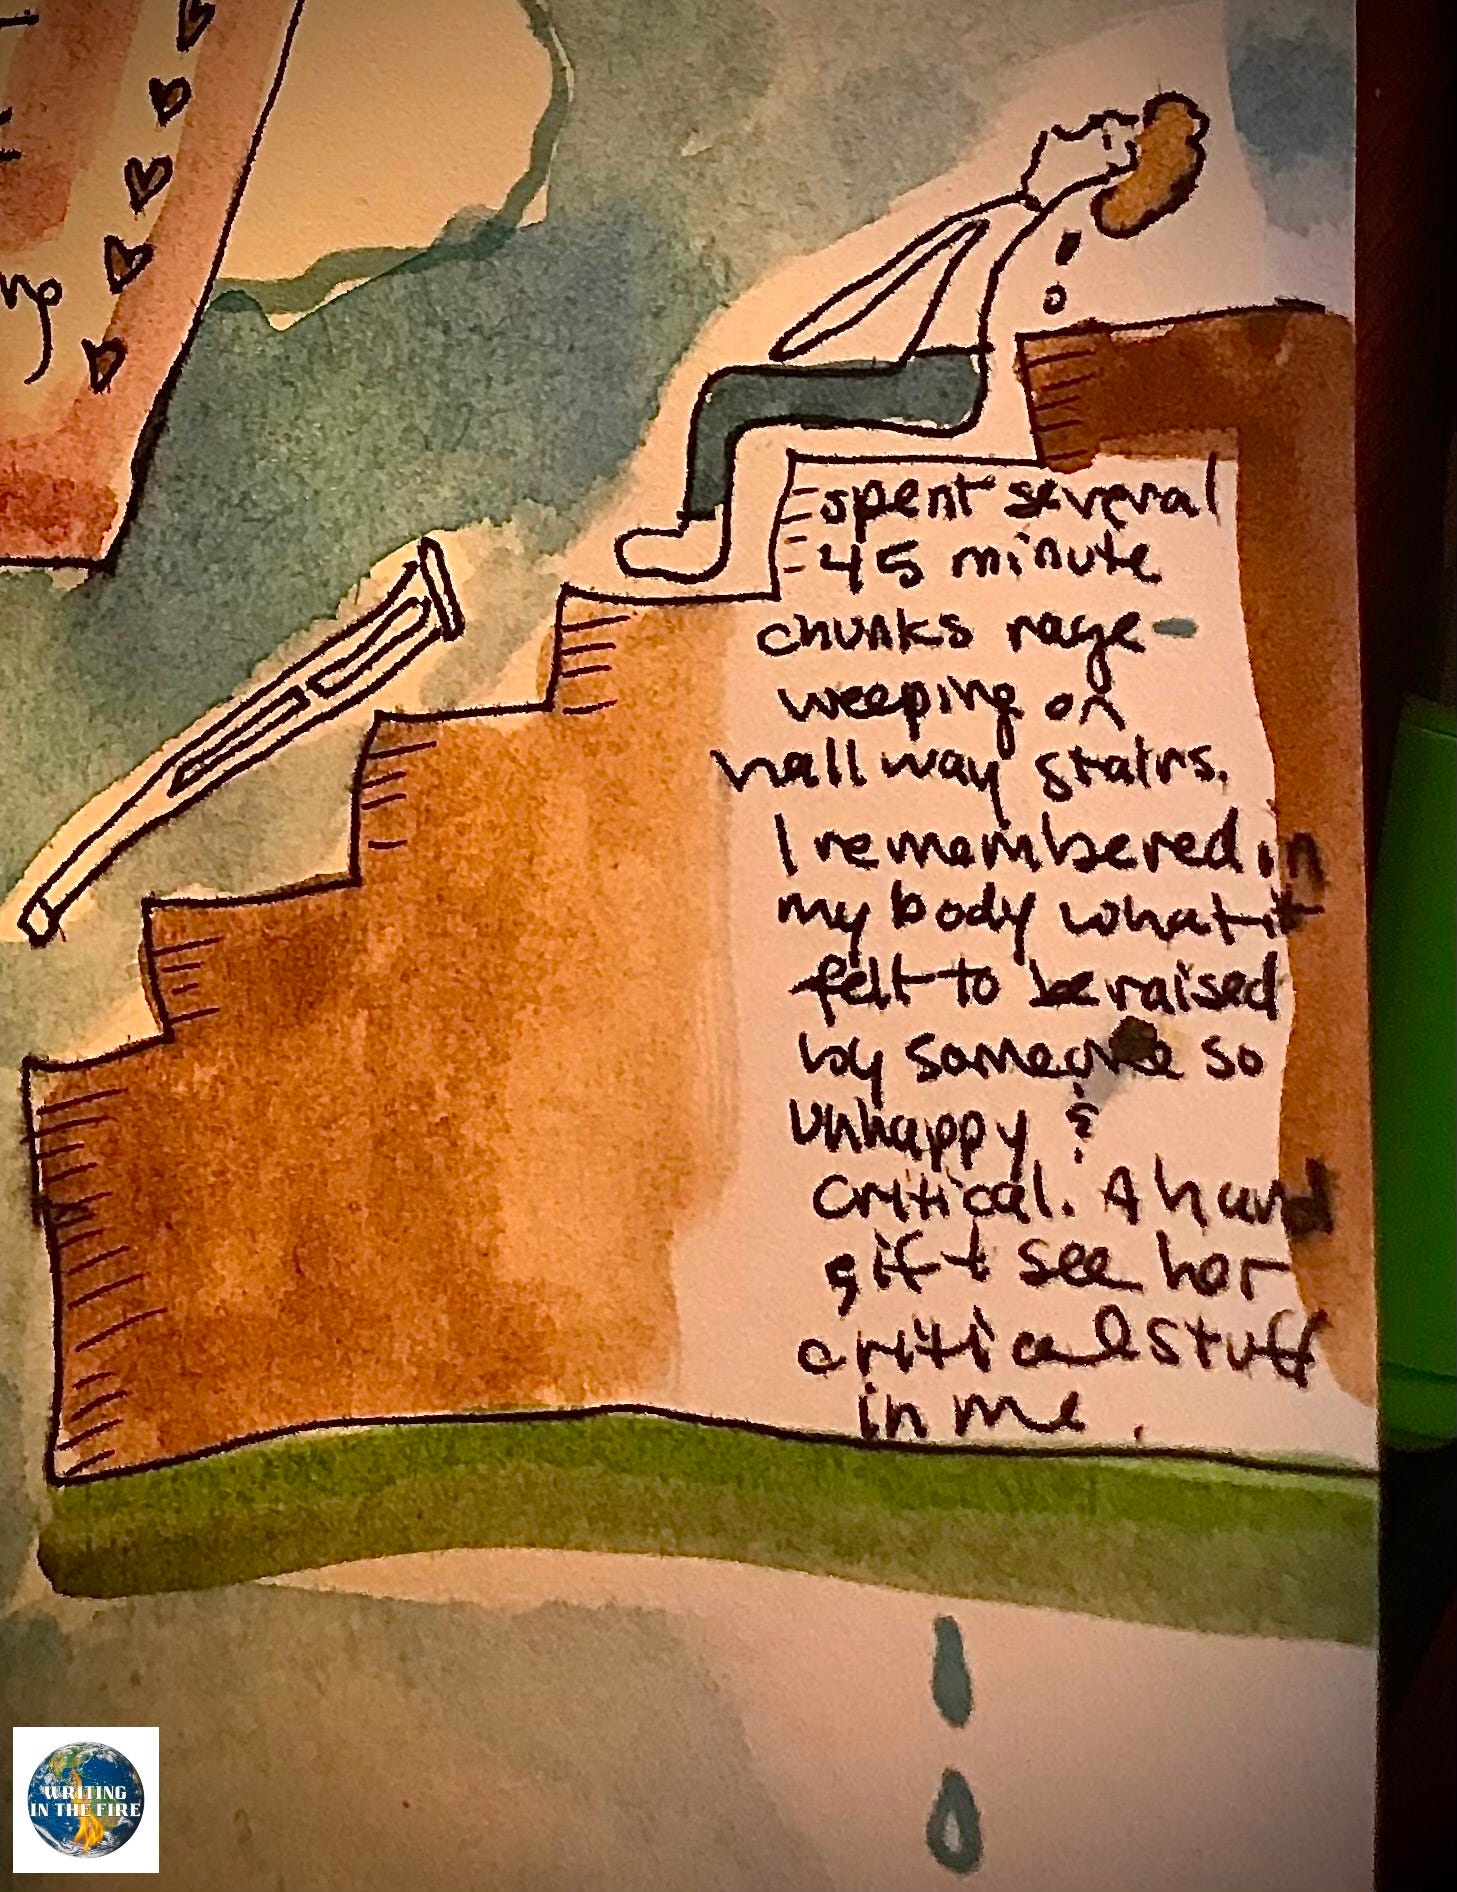 ng
spent several
45 minute
chunks rage-
weeping on
hallway stairs.
I remembered in
my body what it
felt to be raised
by someone so
unhappy &
critical. A hard
gift see her
critical stuff
in me.
WRITING
IN THE FIRE